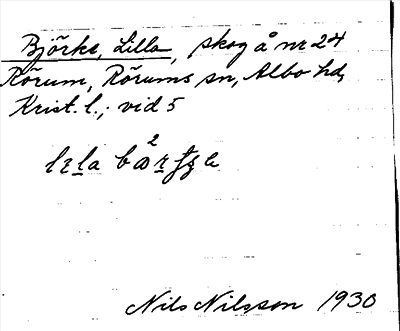 Björke, Lilla, skog å nr 24
Rörum, Rörums sn, Albo hd,
Krist. l.; vid 5
Nils Nilsson 1930